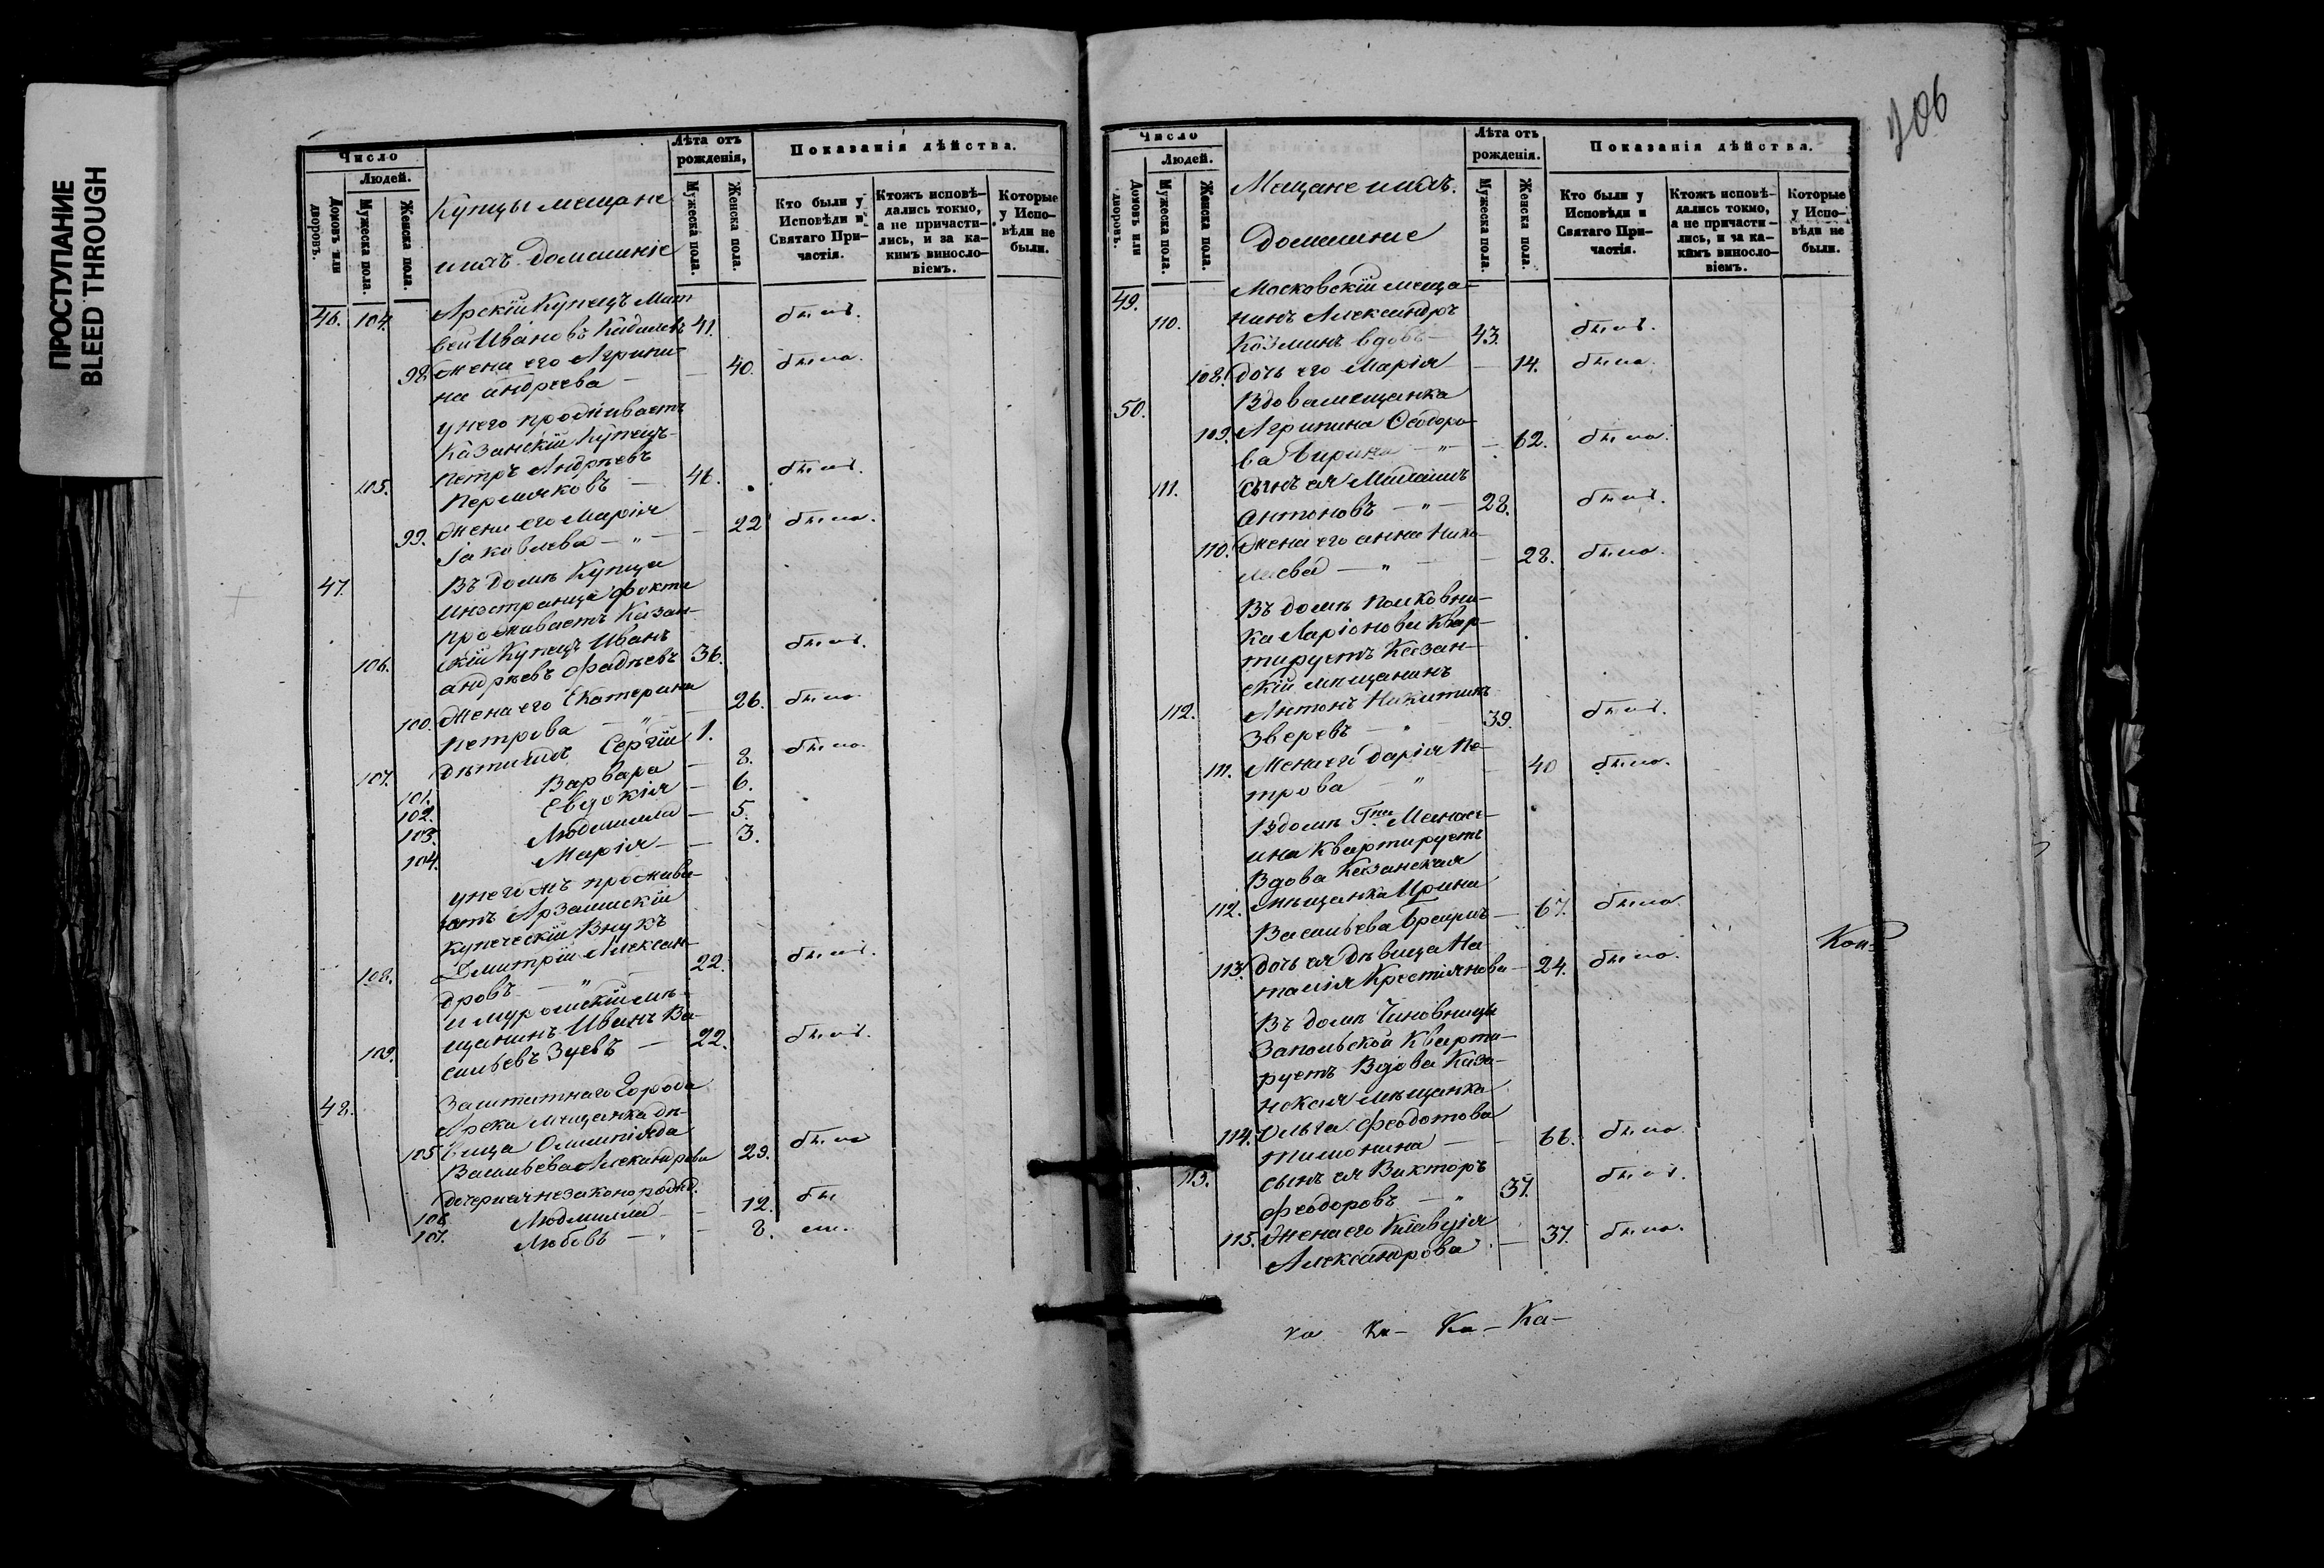 ПРОСТУПАНИЕ
BLEED THROUGH
Число
Людей.
Домовъ или дворовъ.
Мужеска пола.
Женска пола.
Купцы мещане
ихъ домашніе
Лѣта отъ рожденія,
Мужеска пола.
Женска пола.
Показанія дѣйства.
Кто были у Исповѣди и Святаго Причастія.
Ктожъ исповѣдались токмо, а не причастились, и за какимъ винословіемъ.
Которые у Исповѣди не были.
46. 104. Арскій Купецъ Мат
вей Ивановъ 41. былъ.
98. жена его Агрипи-
на Андреева — 40. была.
у него проживаетъ
Казанскій Купецъ
Петръ Андреевъ
105. Пермяковъ — 46. былъ.
99. жена его Марія
Іаковлева — " — 22 была.
47. Въ домѣ Купца
Иностранца
проживаетъ Казан-
106. скій Купецъ Иванъ 36. былъ.
андреевъ Фадѣевъ
100. Жена его Екатерина 26. была
Петрова — " —
107. дѣти ихъ Сергій 1.
101. Варвара — 8. была.
102. Евдокія — 6.
103. Людмилла — 5.
104. Марія — 3.
у него жъ прожива-
етъ Арзамискій
купеческій Внукъ
108. Димитрій Алексан- 22. былъ.
дровъ — " —
и муромскій мѣ-
щанинъ Иванъ Ва-
109. сильевъ Зуевъ — 22. былъ.
48. Заштатнаго Города
Арска мещанка дѣ-
105 вица Олимпіада 29. была
Васильева Александрова
дочери ея незаконорожд.
106. Людмилла — 12. бы
107. Любовь — " — 8. ли.
706
Число
Людей.
Домовъ или дворовъ.
Мужеска пола.
Женска пола.
Мещане ихъ.
домашніе
Лѣта отъ рожденія.
Мужеска пола.
Женска пола.
Показанія дѣйства.
Кто были у Исповѣди и Святаго Причастія.
Ктожъ исповѣдались токмо, а не причастились, и за какимъ винословіемъ.
Которые у Исповѣди не были.
49. Московскій меща-
110. нинъ Александръ
Козминъ вдовъ — 43. былъ.
108. дочь его Марія — 14. была.
50. Вдова мещанка
109. Агрипина Ѳеодоро-
ва — " — 62. была.
111. Сынъ ея Михаилъ
Антоновъ — " — 28. былъ.
110. Жена его анна Нико-
лаева — " — 28. была.
Въ домѣ Полковни-
ка Ларіонова Квар-
тируетъ Казан-
скій мѣщанинъ
112. Антонъ Никитинъ
Зверевъ — 39. былъ.
111. Жена его дарія Пе- 40 была.
трова "
Въ домѣ Гжи
квартируетъ
Вдова Казанская
112. мѣщанка Ирина
Васильева — 67. была
113. дочь ея дѣвица На-
талія Крестіянова — 24. была.
Въ домѣ Чиновницы
Запольской Кварти-
руетъ Вдова Каза-
нская мѣщанка
114. Ольга Феодотова
Тимонина — 66. была
113. сынъ ея Викторъ
Феодоровъ — " 37. былъ.
115. Жена его Клавдія
Александрова — 37. была.
Коп-
ка Ка- Ка- Ка-